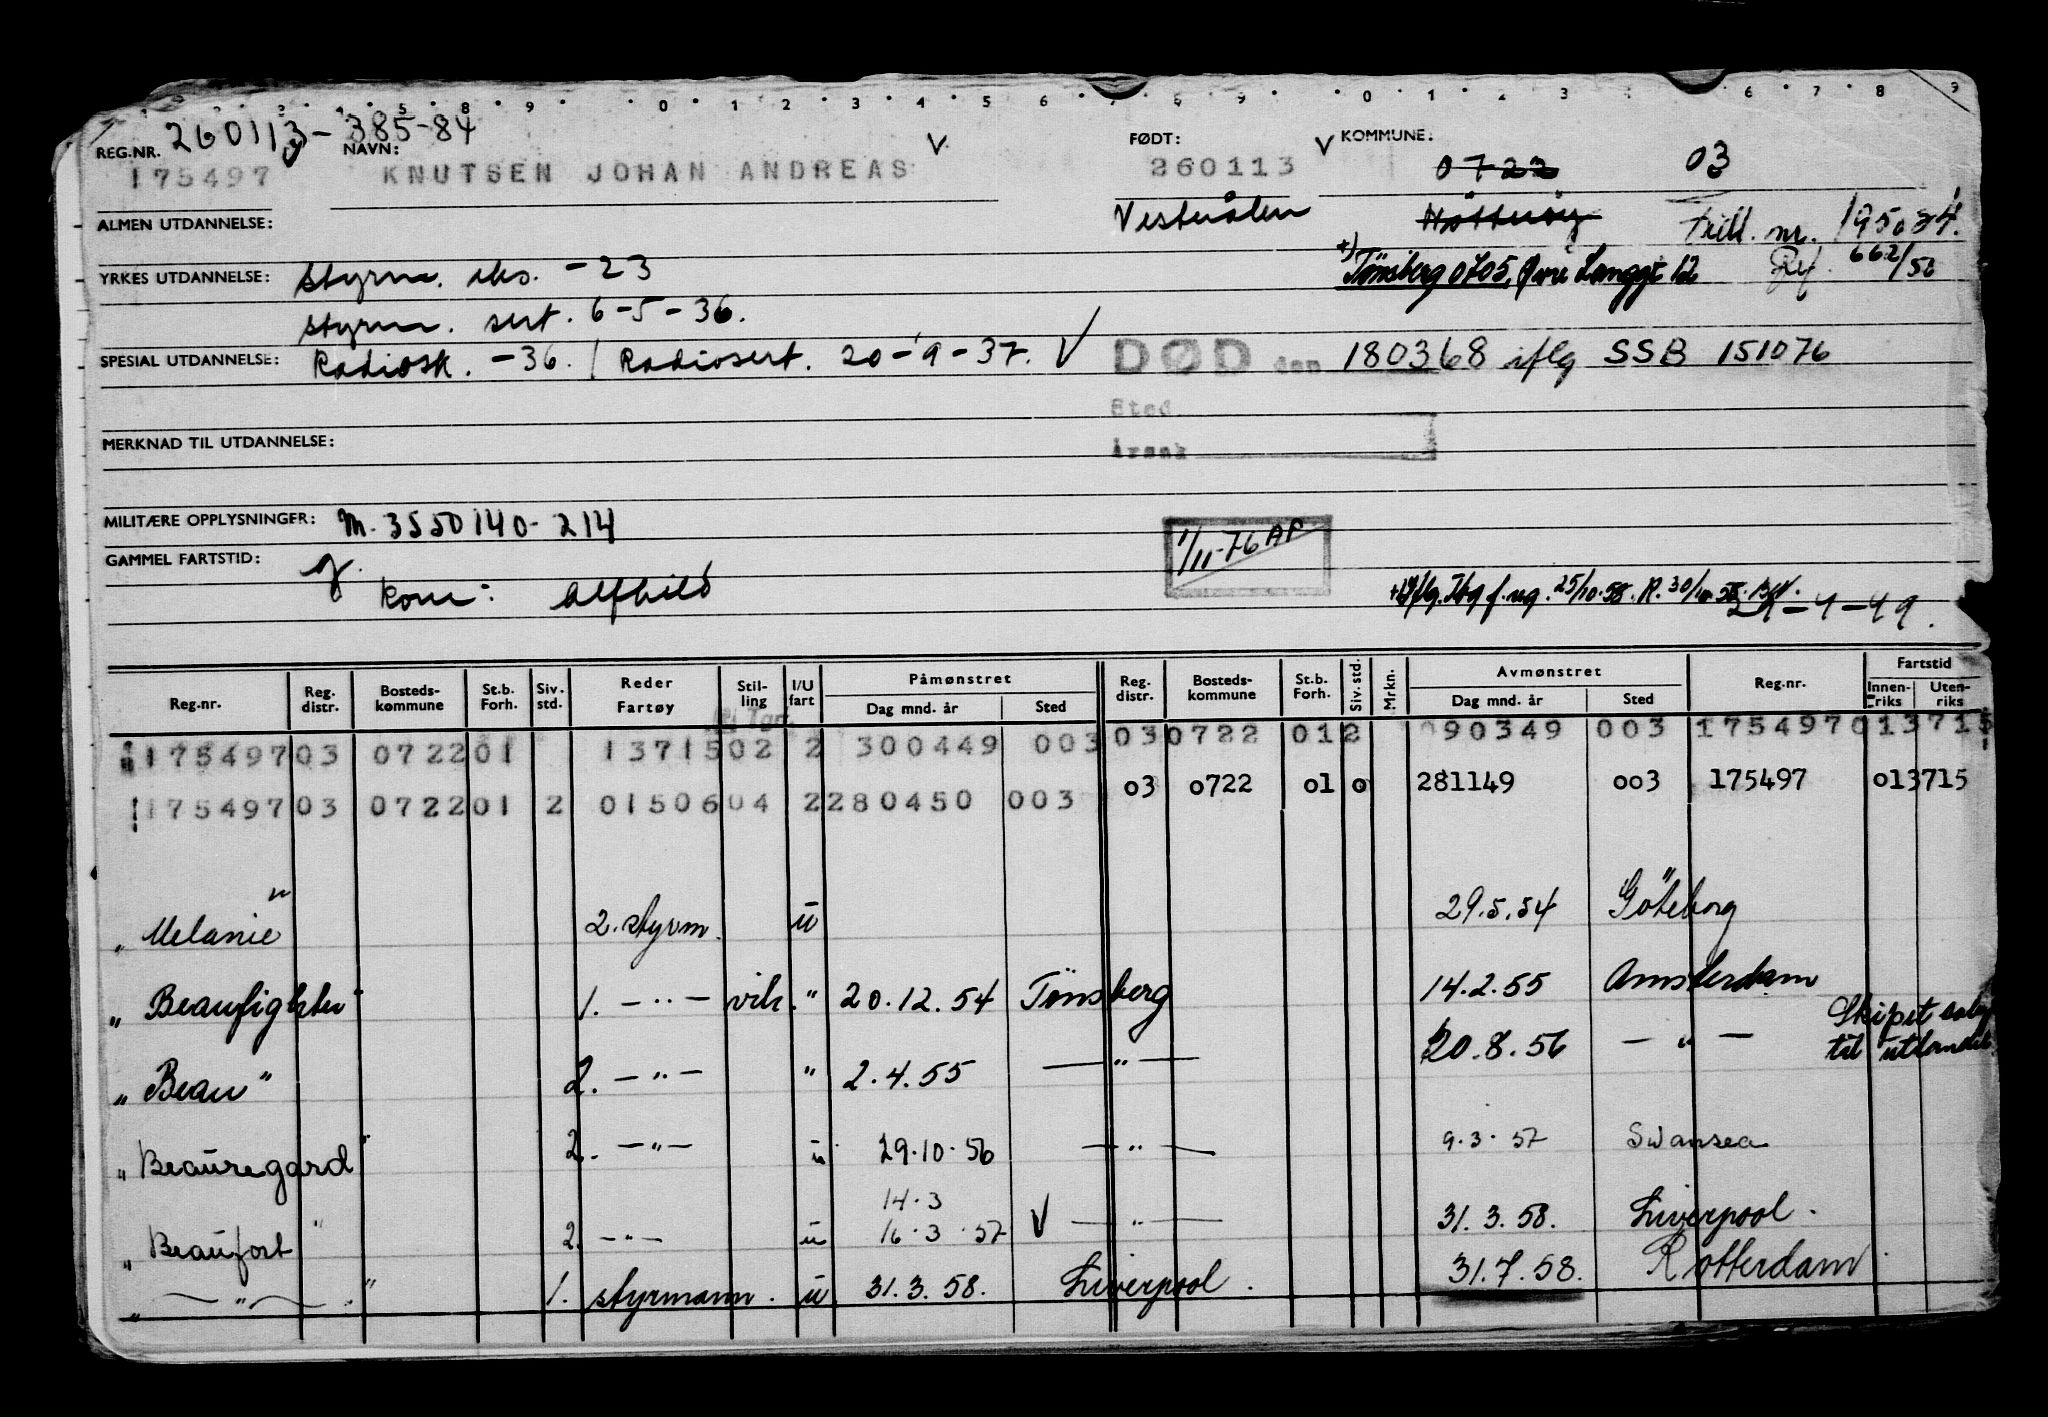 260113-385-84
REG.NR. NAVN: FØDT: KOMMUNE:
175497 KNUTSEN JOHAN ANDREAS V 260113 V 0722 03
ALMEN UTDANNELSE: Vesterålen Nøtterøy Frill. nr. 195034.
YRKES UTDANNELSE: styrm. eks. -23 +) Tønsberg 0705, Øvre Langgt 62 Ref. 662/56
styrm. sert. 6-5-36.
SPESIAL UTDANNELSE: Radiosk. -36. / Radiosert. 20-9-37. V DØD den 180368 iflg SSB 151076
Sted
MERKNAD TIL UTDANNELSE: Årsak
MILITÆRE OPPLYSNINGER: M. 3550140-214 1/11-76 AP
GAMMEL FARTSTID: g.
Kone: Alfhild +) Iflg. Tbg f. reg. 25/10-58. R. 30/10
29-4-49.
Reg.nr. Reg. distr. Bosteds- kommune St.b. Forh. Siv. std. Reder Fartøy Stil- ling I/U fart Påmønstret Dag mnd. år Sted Reg. distr. Bosteds- kommune St.b. Forh. Siv. std. Mrkn. Avmønstret Dag mnd. år Sted Reg.nr. Fartstid Innen- riks Uten- riks
175497 03 0722 01 13715 02 2 300449 003 03 0722 01 2 090349 003 175497 013715
03 0722 01 0 281149 003 175497 013715
175497 03 0722 01 2 01506 04 2 280450 003
" Melanie " 2. styrm. u 29.5.54 Göteborg
" Beaufighter " 1. - " - vik. " 20.12.54 Tønsberg 14.2.55 Amsterdam
" Beau " 2. - " - " 2.4.55 - " - 20.8.56 - " - Skipet solgt til utlandet.
" Beauregard " 2. - " - u 29.10.56 - " - 9.3.57 Swansea
14.3
" Beaufort " 2. - " - u 16.3.57 V - " - 31.3.58. Liverpool.
" - " - " 1. styrmann. u 31.3.58. Liverpool. 31.7.58. Rotterdam.